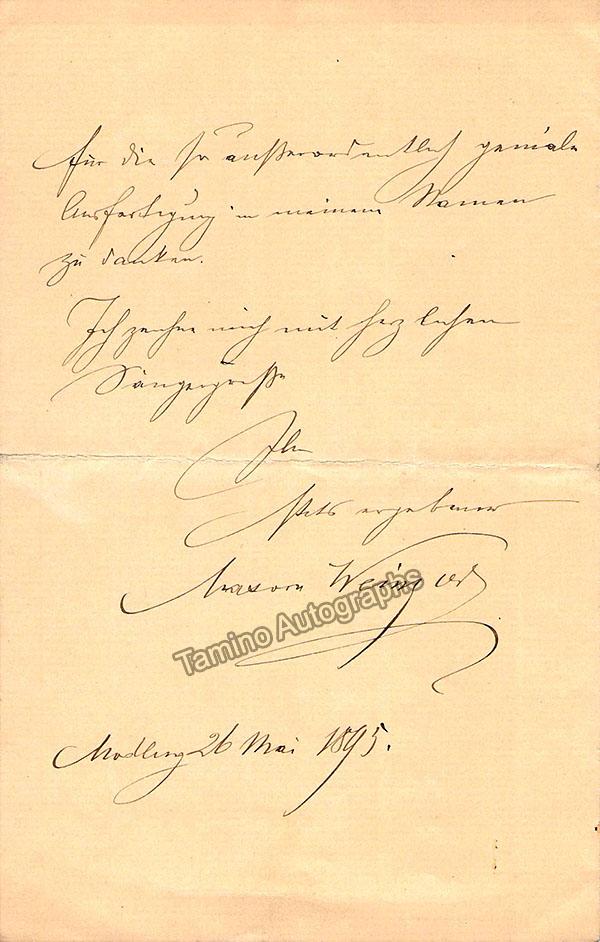 für die so außerordentlich geniale
Ausfertigung in meinem Namen
zu danken.
Ich zeichne mich mit herzlichen
Sängergrüße
Ihr
stets ergebener
Weinz
Tamino Autographs
Modling 26 Mai 1895.